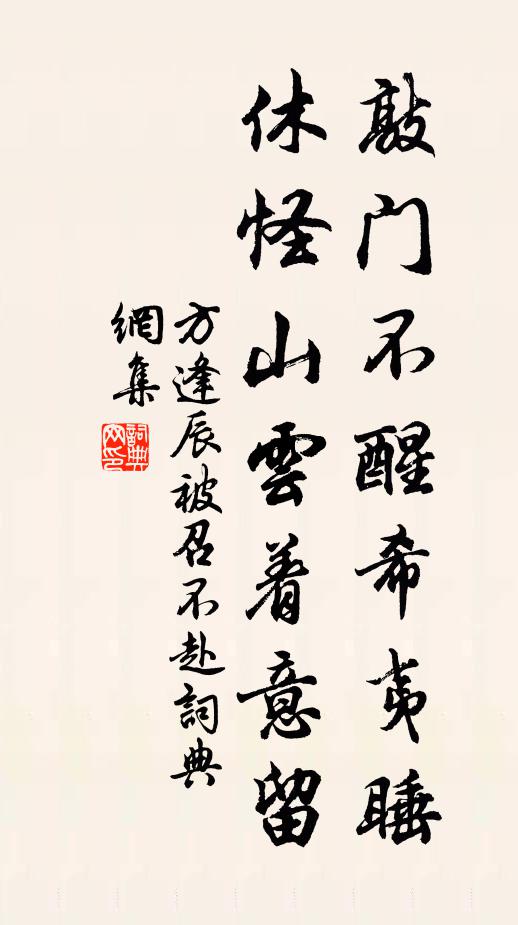 敲门不醒希夷睡
休怪山雲着意留
方逢辰被召不赴詞典
網集
詞典
网印